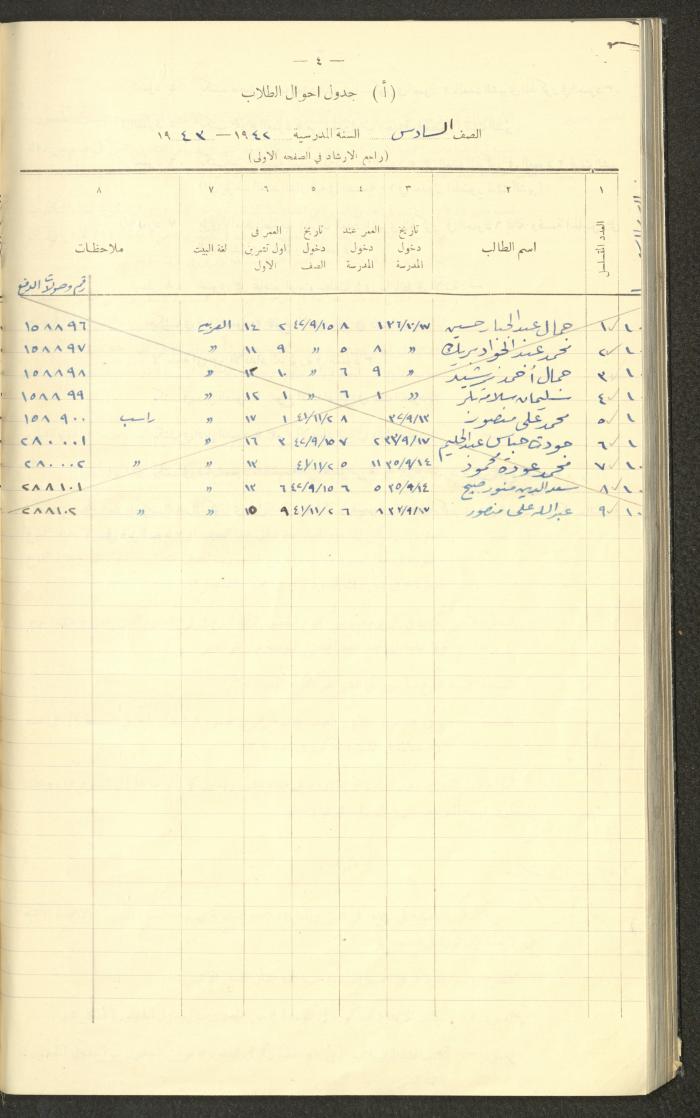 — ٤ —
(أ) جدول احوال الطلاب
الصف السادس السنة المدرسية ١٩٤٢ — ١٩٤٣
(راجع الارشاد في الصفحه الاولى)
١ ٢ ٣ ٤ ٥ ٦ ٧ ٨
العدد المتسلسل اسم الطالب تاريخ دخول المدرسة العمر عند دخول المدرسة تاريخ دخول الصف العمر في اول تشرين الاول لغة البيت ملاحظات
رقم وصولات الدفع
١ جمال عبد الجبار حسين ٨ ٤٢/٩/١٥ ٢ ١٤ العربية ١٥٨٨٩٦
٢ محمد عبد الجواد ״ ٨ ٥ ״ ٩ ١١ ״ ١٥٨٨٩٧
٣ جمال أحمد رشيد ״ ٩ ٦ ״ ١٠ ١٢ ״ ١٥٨٨٩٨
٤ سليمان سلامة بكر ״ ١ ٦ ״ ١ ١٢ ״ ١٥٨٨٩٩
٥ محمد علي منصور ٣٤/٩/١٣ ٨ ٤١/١١/٢ ١ ١٧ ״ راسب ١٥٨٩٠٠
٦ جودت عباس عبد الحليم ٣٣/٩/١٧ ٢ ٧ ٤٢/٩/١٥ ٣ ١٦ ״ ٢٨٠٠٠١
٧ محمد عودة محمود ٣٥/٩/١٤ ١١ ٥ ٤١/١١/٢ ١٣ ״ ״ ٢٨٠٠٠٢
٨ سعد الدين منور صبح ٣٥/٩/١٤ ٥ ٦ ٤٢/٩/١٥ ٦ ١٣ ״ ٢٨٨١٠١
٩ عبد الله علي منصور ٨ ٦ ٤١/١١/٢ ٩ ١٥ ״ ״ ٢٨٨١٠٢